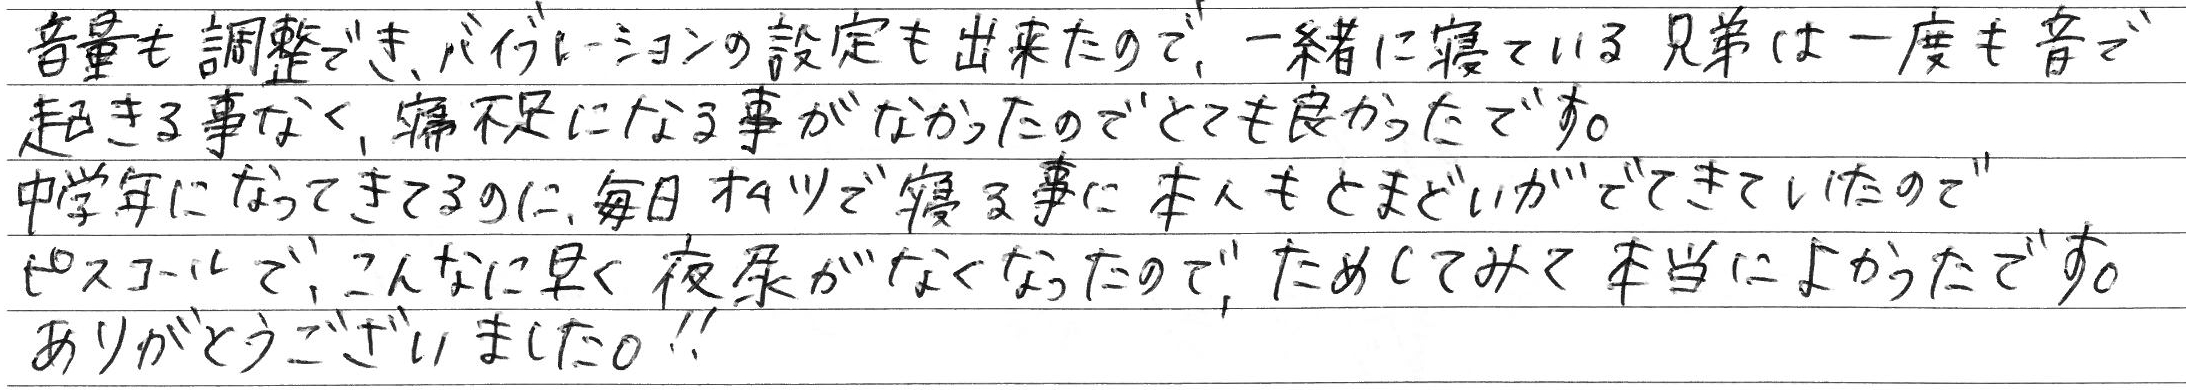 音量も調整でき、バイブレーションの設定も出来たので、一緒に寝ている兄弟は一度も音で
起きる事なく、寝不足になる事がなかったのでとても良かったです。
中学年になってきてるのに、毎日オムツで寝る事に本人もとまどいがでてきていたので
ピスコールで、こんなに早く夜尿がなくなったので、ためしてみて本当によかったです。
ありがとうございました。!!